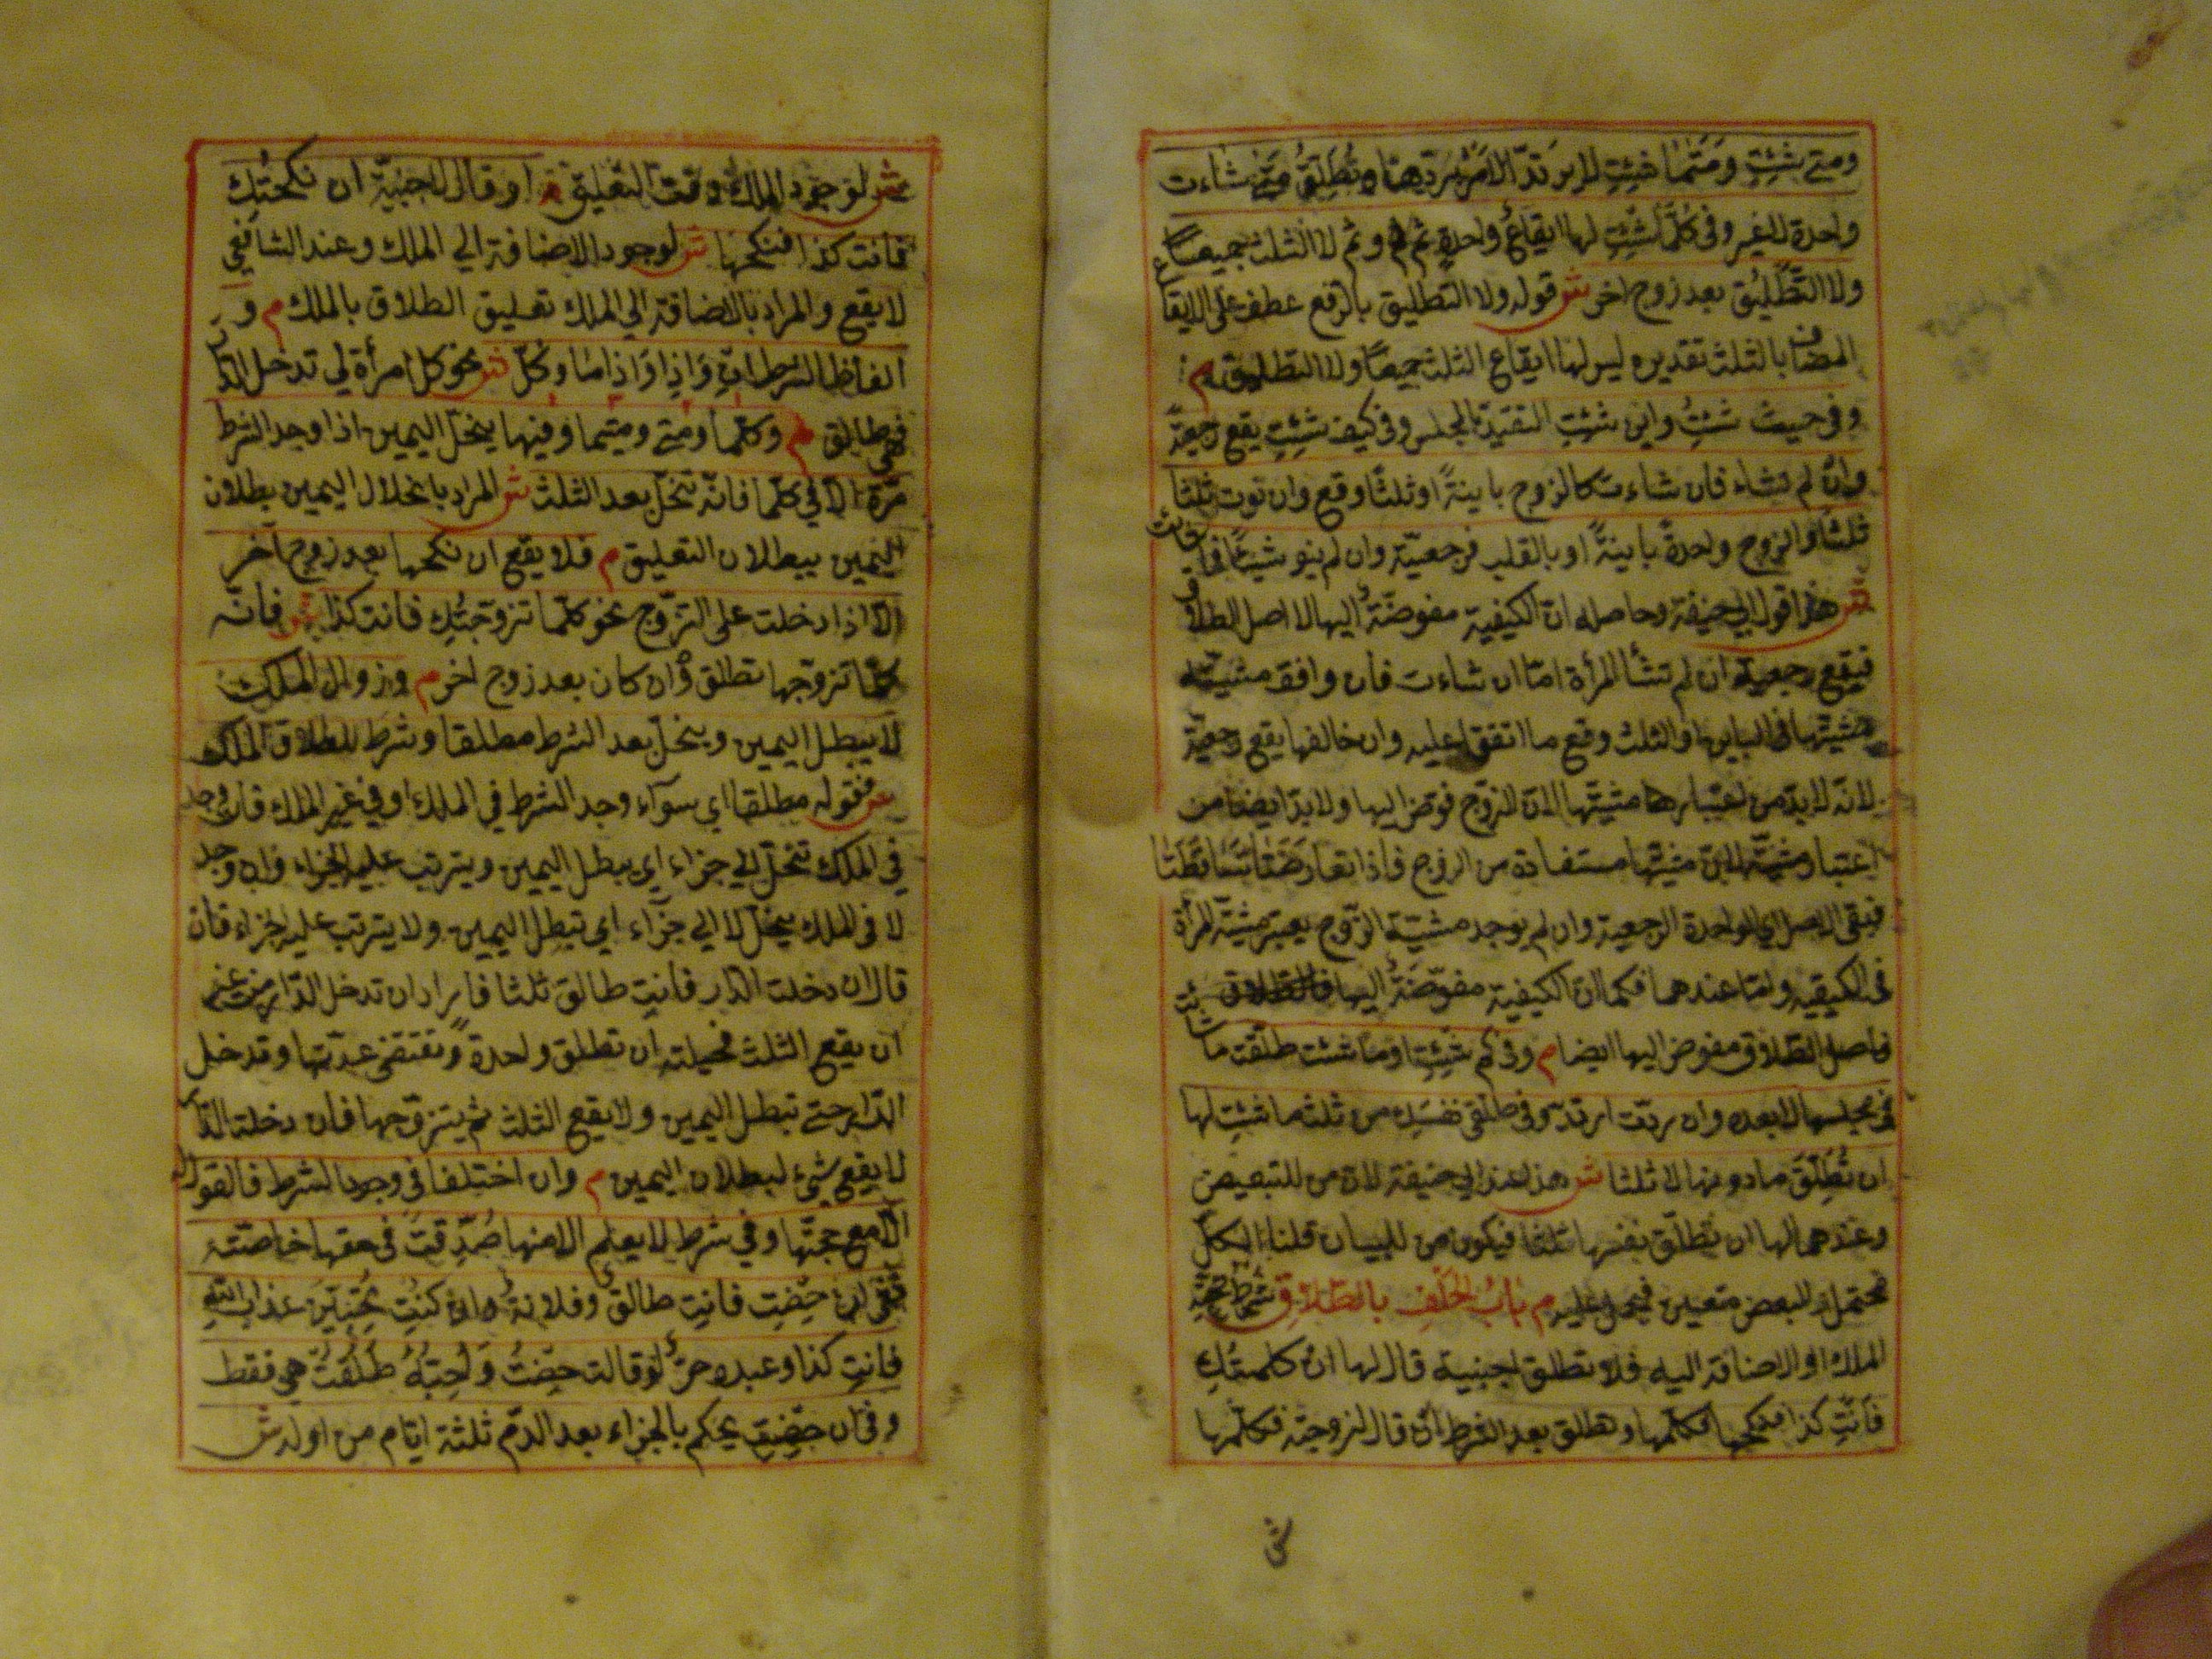 ومتى شئتِ ومتما شئتِ لا يرتدّ الامر بردّها وتُطَلِّقُ متى شاءت
واحدة لا غير وفى كُلَّما شئتِ لها ايقاعُ واحدةٍ ثم وثم لا الثلث جميعًا
ولا التَّطليُق بعد زوج اخر ش قوله ولا التطليق بالرفع عطف على الايقاع
المضاف بالثلث تقديره ليس لها ايقاع الثلث جميعًا ولا التطليق م
وفى حيث شئتِ واين شئتِ التقيّد بالمجلس وفى كيف شئتِ يقع رجعيّة
وان لم تشاء فان شاءت كالزوج باينةً او ثلثًا وقع وان نوت ثلثا
ثلثا والزوج واحدةً باينةً او بالقلب فرجعيّة وان لم ينو شيئا فما شاءت
ش هذا قول ابى حنيفة وحاصله انّ الكيفية مفوضّةٌ اليها لا اصل الطلاق
فيقع رجعية ان لم تشأ المرأة امّا ان شاءت فان وافق مشيّته
مشيّتها فى الباين او الثلث وقع ما اتفقا عليه وان خالفها يقع رجعيّة
لانّه لا بدّ من اعتبار مشيّتها لانّ الزوج فوّض اليها ولا بدّ ايضا من
اعتبار مشيّته لانّ مشيّتها مستفادة من الزوج فاذا تعارضَتا تساقَطَتا
فبقى الاصل اى الواحدة الرجعية وان لم يوجد مشيّة الزّوج يعتبر مشيّة المرأة
فى الكيفيه وامّا عندهما فكما انّ الكيفية مفوّضَةٌ اليها
فاصل الطّلاق مفوض اليها ايضا م وفى كم شئتِ او ما شئت طلّقت ما شئت
فى مجلسها لا بعده وان ردّت ارتدّ وفى طلّقى نفسَك من ثلث ما شئتِ لها
ان تُطَلِّقَ ما دونها لا ثلثا ش هذا عند ابى حنيفة لانّ من للتبعيض
وعندهما لها ان تطلّق نفسها ثلثا فيكون من للبيان قلنا الكلّ
محتمل والبعض متعين فيحمل عليه م بابُ الحَلْفِ بالطّلاقِ شرط صحّته
الملك او الاضافة اليه فلا تطلق اجنبية قال لها ان كلمتكِ
فانتِ كذا فنكحها فكلّمها وتطلق بعد الشرط ان قال لزوجته فكلّمها
ش
ش لوجود الملك وقت التعليق م او قال لاجنبيّة ان نكحتكِ
فانت كذا فنكحها ش لوجود الاضافة الى الملك وعند الشافعى
لا يقع والمراد بالاضافة الى الملك تعليق الطلاق بالملك م و
الفاظ الشرط ان واذا واذاما وكلّ ش نحو كل امرأة لى تدخل الدار
فهى طالق م وكلّما ومتى ومتيما وفيها ينحلّ اليمين اذا وجد الشرط
مرّة الّا فى كلّما فانّه تنحلّ بعد الثلث ش المراد بانحلال اليمين بطلان
اليمين ببطلان التعليق م فلا يقع ان نكحها بعد زوج آخر
الّا اذا دخلت على التزوّج نحو كلّما تزوّجتُكِ فانت كذا ش فانّه
كلّما تزوّجها تطلق وان كان بعد زوج اخر م وزوال الملك
لا يبطل اليمين وينحلّ بعد الشرط مطلقا وشرط للطلاق الملك
ش فقوله مطلقا اى سوآء وجد الشرط فى الملك او فى غير الملك فان وجد
فى الملك تنحلّ الى جزاء اى يبطل اليمين ويترتب عليه الجزاء وان وجد
لا فى الملك ينحلّ لا الى جزآء اى تبطل اليمين ولا يترتب عليه الجزاء فان
قال ان دخلت الدار فانتِ طالق ثلثا فاراد ان تدخل الدّار من غير
ان يقع الثلث فحيلته ان تطلق واحدة وتنقضى عدّتها وتدخل
الدّار حتى تبطل اليمين ولا يقع الثلث ثم يتزوّجها فان دخلت الدّار
لا يقع شىء لبطلان اليمين م وان اختلفا فى وجود الشرط فالقول له
الّا مع حجتها وفى شرط لا يعلم الا منها صُدِّقَتْ فى حقها خاصّة
ففى ان حِضتِ فانتِ طالق وفلانة وان كنتِ تُحِبِّينَ عذاب الله
فانتِ كذا وعبده حرٌّ لو قالت حِضْتُ وَاُحِبُّهُ طُلِّقَتْ هى فقط
وفى ان حِضْتِ يحكم بالجزاء بعد الدّم ثلثة ايّام من اوله ش